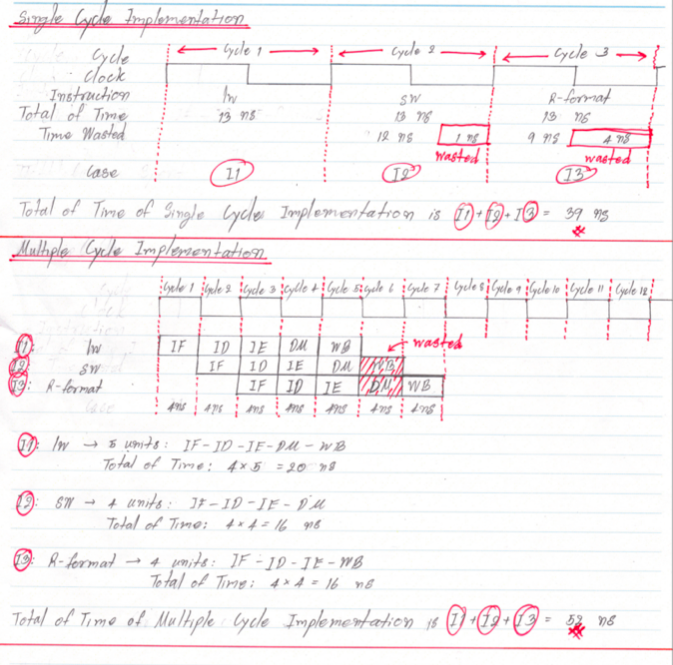 Single Cycle Implementation
Cycle Cycle 1 Cycle 2 Cycle 3
Clock
Instruction lw sw R-format
Total of Time 13 ns 13 ns 13 ns
Time Wasted 12 ns 1 ns 9 ns 4 ns
wasted wasted
Case I1 I2 I3
Total of Time of Single Cycle Implementation is I1 + I2 + I3 = 39 ns
Multiple Cycle Implementation
Cycle 1 Cycle 2 Cycle 3 Cycle 4 Cycle 5 Cycle 6 Cycle 7 Cycle 8 Cycle 9 Cycle 10 Cycle 11 Cycle 12
wasted
I1: lw IF ID IE DM WB
I2: sw IF ID IE DM WB
I3: R-format IF ID IE DM WB
4ns 4ns 4ns 4ns 4ns 4ns 4ns
I1: lw → 5 units: IF-ID-IE-DM-WB
Total of Time: 4 x 5 = 20 ns
I2: SW → 4 units: IF-ID-IE-DM
Total of Time: 4 x 4 = 16 ns
I3: R-format → 4 units: IF-ID-IE-WB
Total of Time: 4 x 4 = 16 ns
Total of Time of Multiple Cycle Implementation is I1 + I2 + I3 = 52 ns